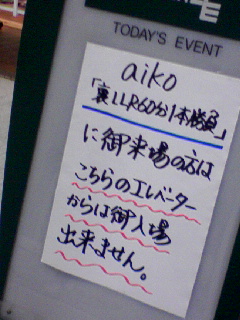 TODAY'S EVENT
aiko
「裏LLR60分1本勝負」
に御来場の方は
こちらのエレベーター
からは御入場
出来ません。